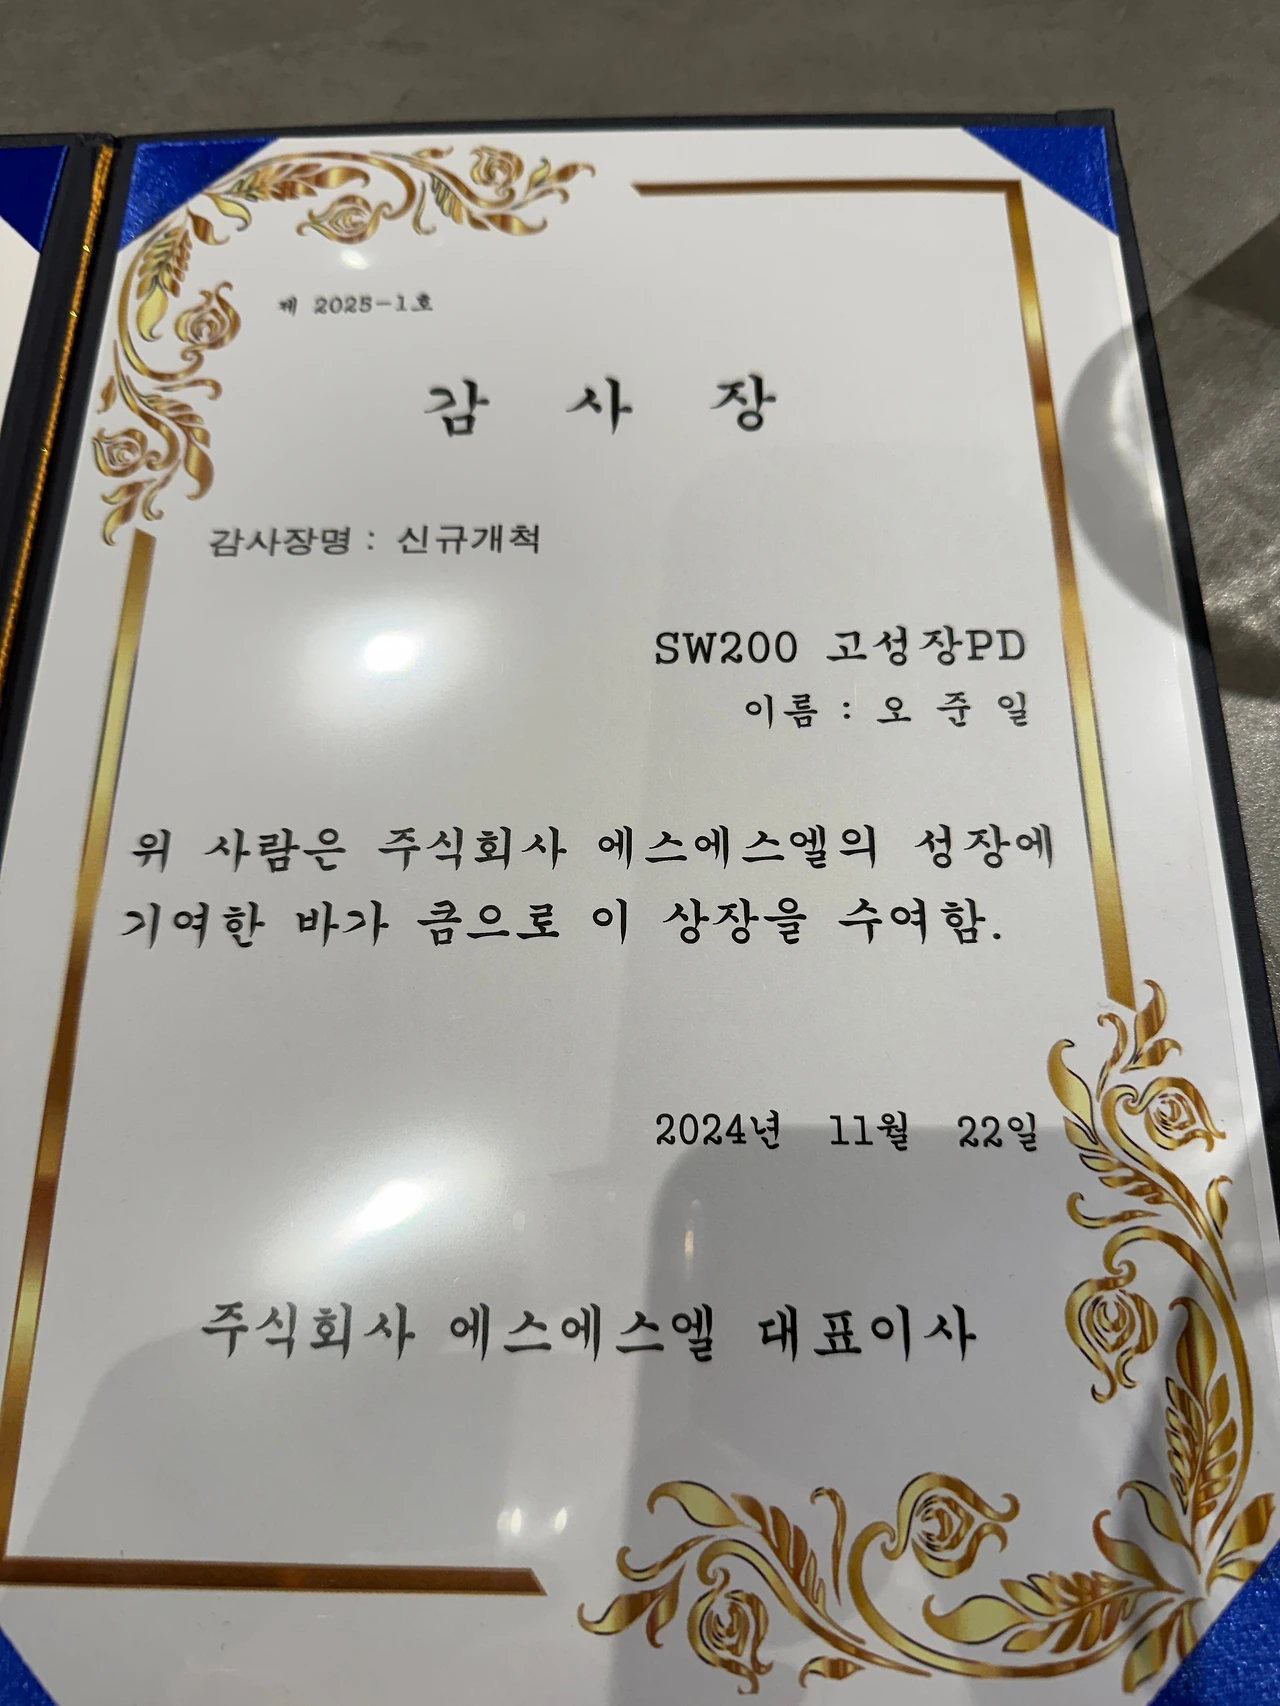 제 2025-1호
감 사 장
감사장명 : 신규개척
SW200 고성장PD
이름 : 오 준 일
위 사람은 주식회사 에스에스엘의 성장에
기여한 바가 큼으로 이 상장을 수여함.
2024년 11월 22일
주식회사 에스에스엘 대표이사